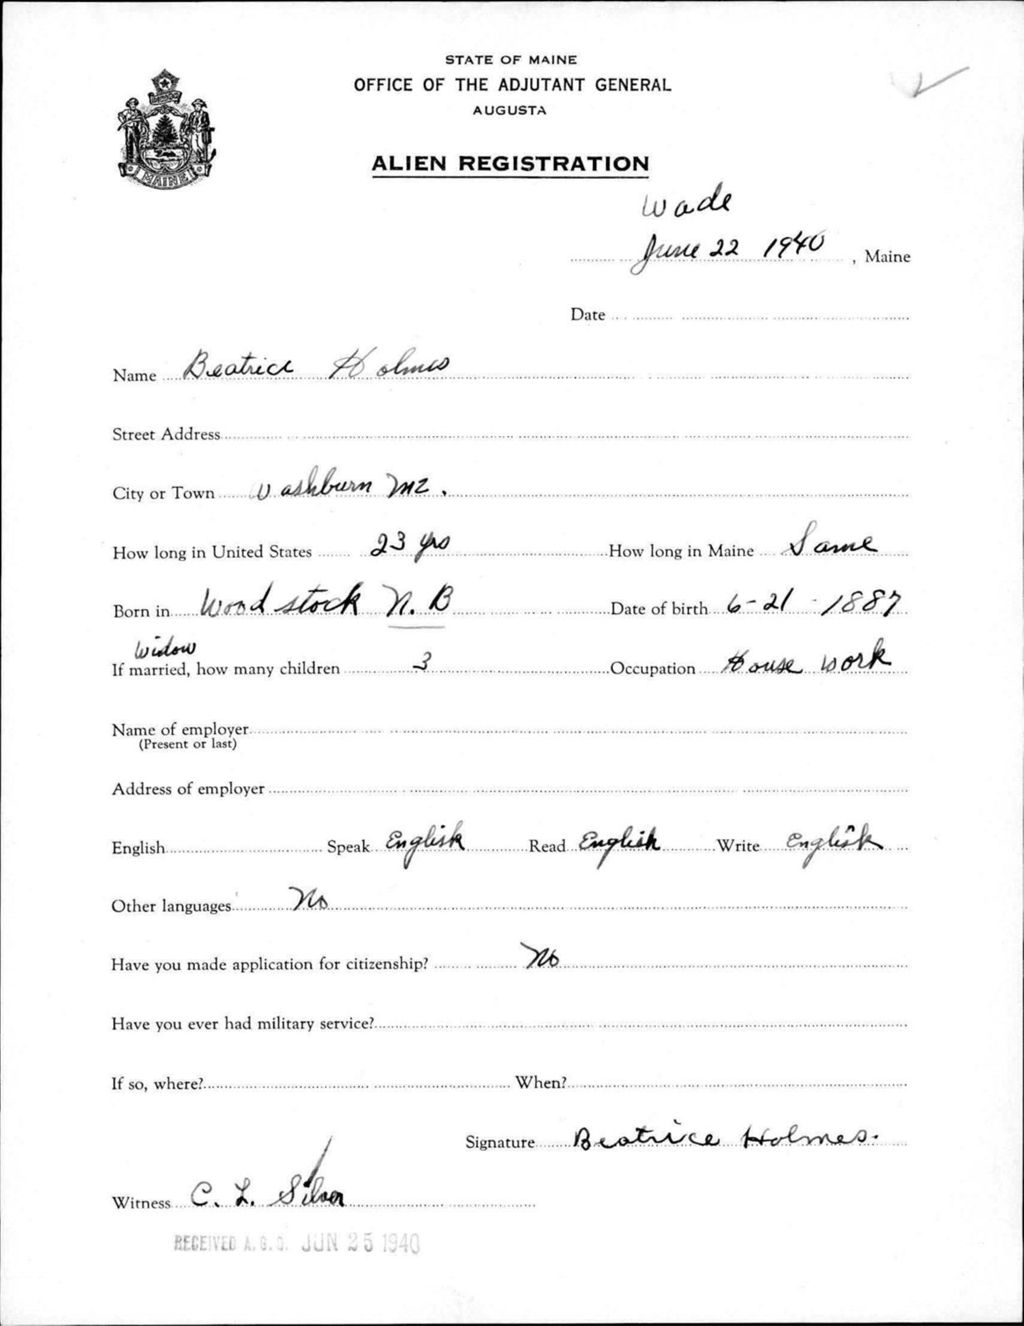 STATE OF MAINE
OFFICE OF THE ADJUTANT GENERAL
AUGUSTA
ALIEN REGISTRATION
MAINE
Wade
June 22 1940, Maine
Date
Name Beatrice Holmes
Street Address
City or Town Washburn Me.
How long in United States 23 yrs How long in Maine Same
Born in Woodstock N. B Date of birth 6-21-1887
Widow
If married, how many children 3 Occupation House work
Name of employer
(Present or last)
Address of employer
English Speak English Read English Write English
Other languages No
Have you made application for citizenship? No
Have you ever had military service?
If so, where? When?
Signature Beatrice Holmes.
Witness C. L. Silver
RECEIVED A.G.O. JUN 25 1940